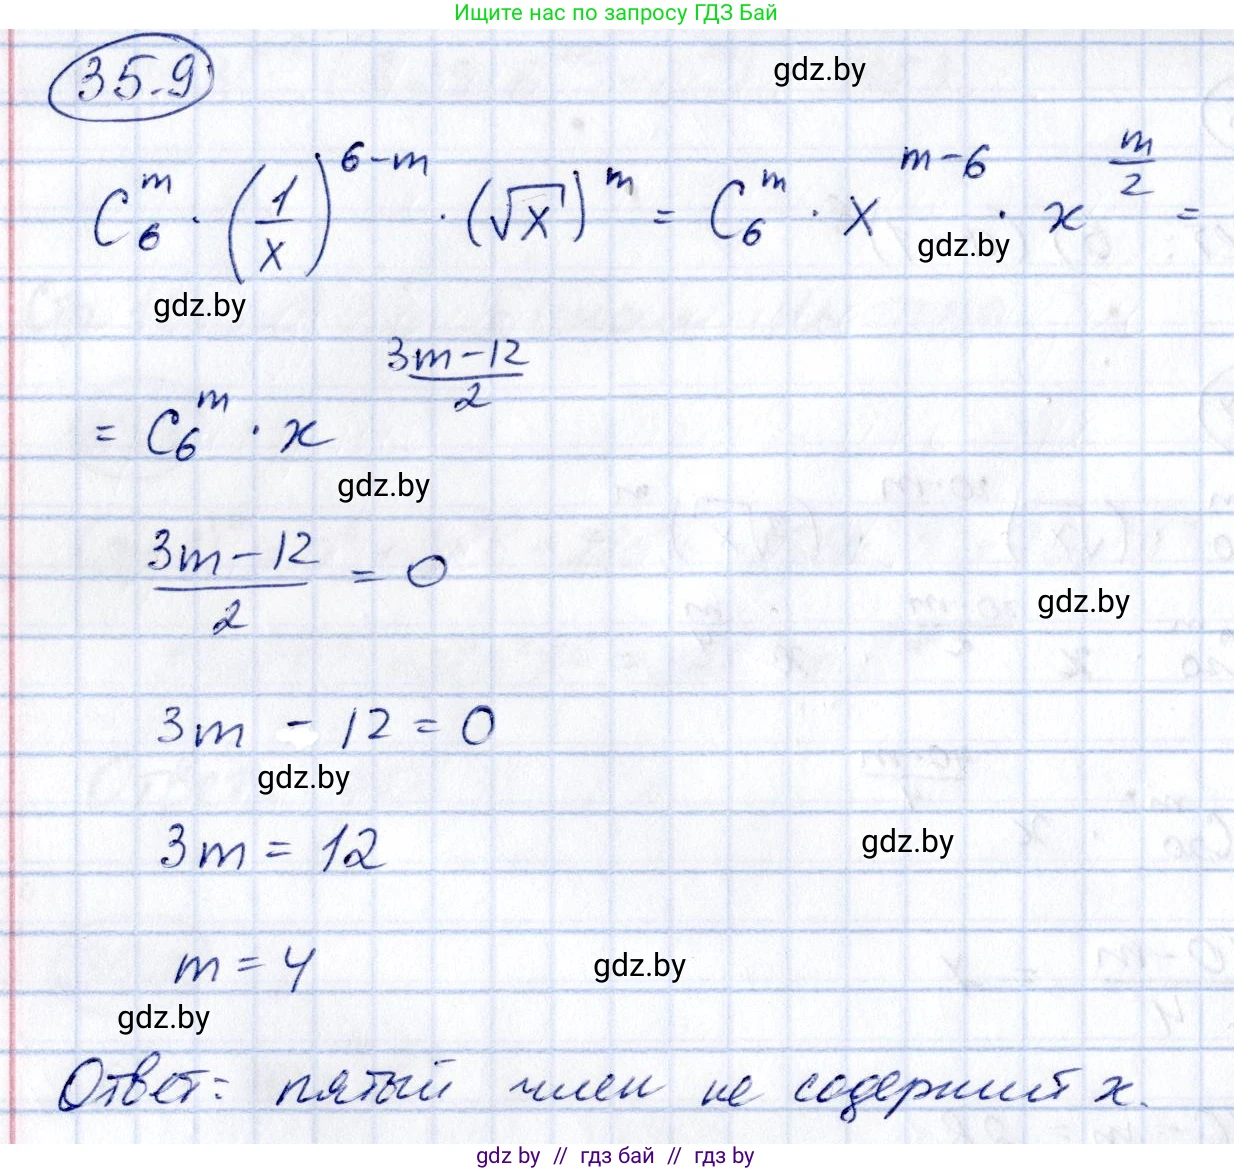 Ищите нас по запросу ГДЗ Бай
35.9
gdz.by
C₆^m · (1/x)^(6-m) · (√x)^m = C₆^m · x^(m-6) · x^(m/2) =
gdz.by
gdz.by
= C₆^m · x^((3m-12)/2)
gdz.by
(3m-12)/2 = 0
gdz.by
3m - 12 = 0
gdz.by
3m = 12
gdz.by
m = 4
gdz.by
gdz.by
Ответ: пятый член не содержит x.
gdz by // гдз бай // gdz by